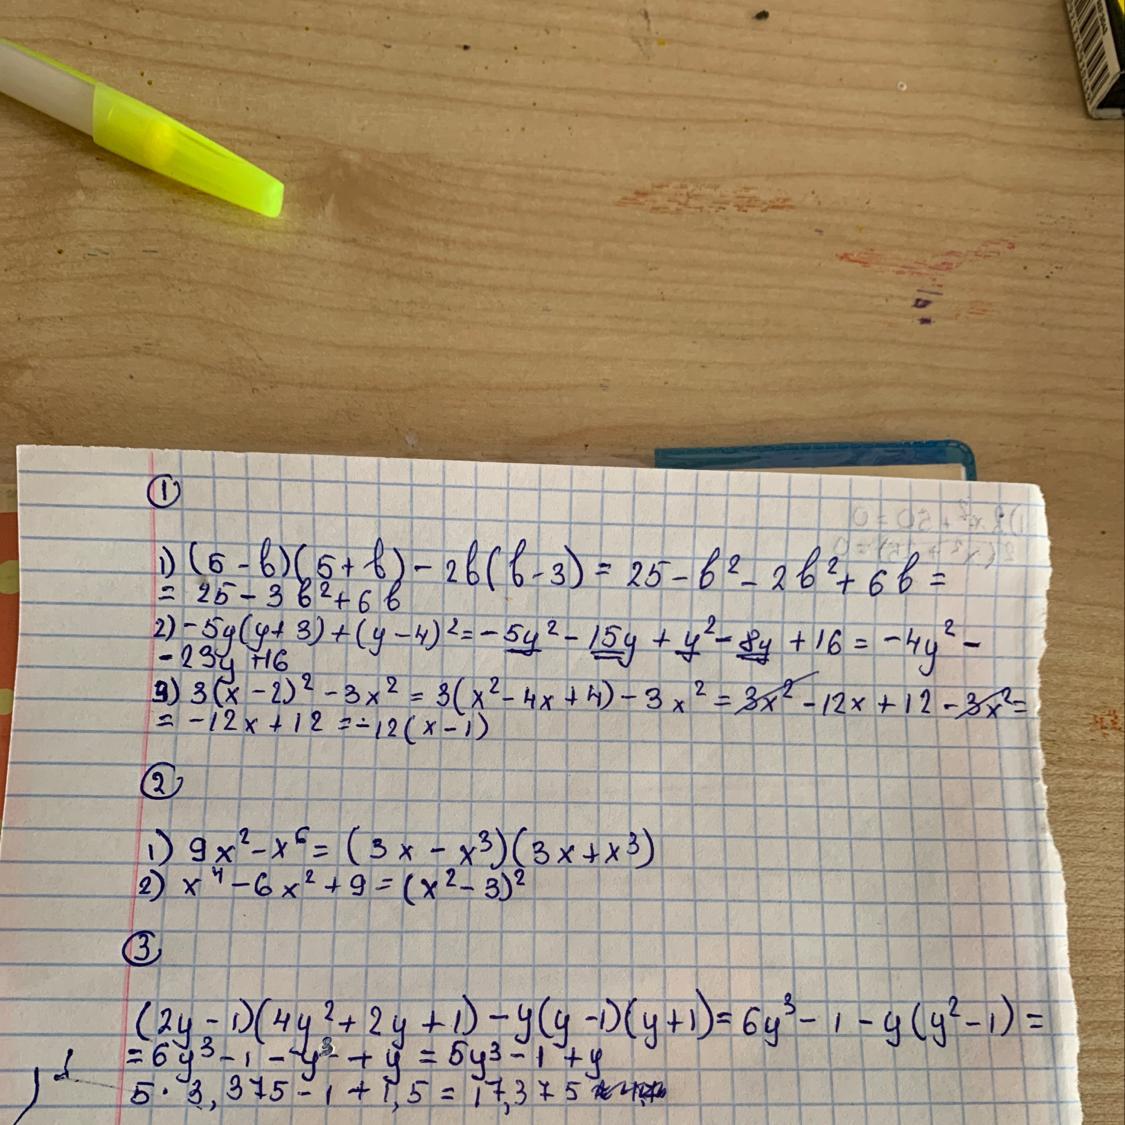 1
1) (5 - b)(5 + b) - 2b(b - 3) = 25 - b² - 2b² + 6b =
= 25 - 3b² + 6b
2) - 5y(y + 3) + (y - 4)² = - 5y² - 15y + y² - 8y + 16 = - 4y² -
- 23y + 16
3) 3(x - 2)² - 3x² = 3(x² - 4x + 4) - 3x² = 3x² - 12x + 12 - 3x² =
= - 12x + 12 = - 12(x - 1)
2
1) 9x² - x⁶ = (3x - x³)(3x + x³)
2) x⁴ - 6x² + 9 = (x² - 3)²
3
(2y - 1)(4y² + 2y + 1) - y(y - 1)(y + 1) = 6y³ - 1 - y(y² - 1) =
= 6y³ - 1 - y³ + y = 5y³ - 1 + y
5 · 3,375 - 1 + 1,5 = 17,375